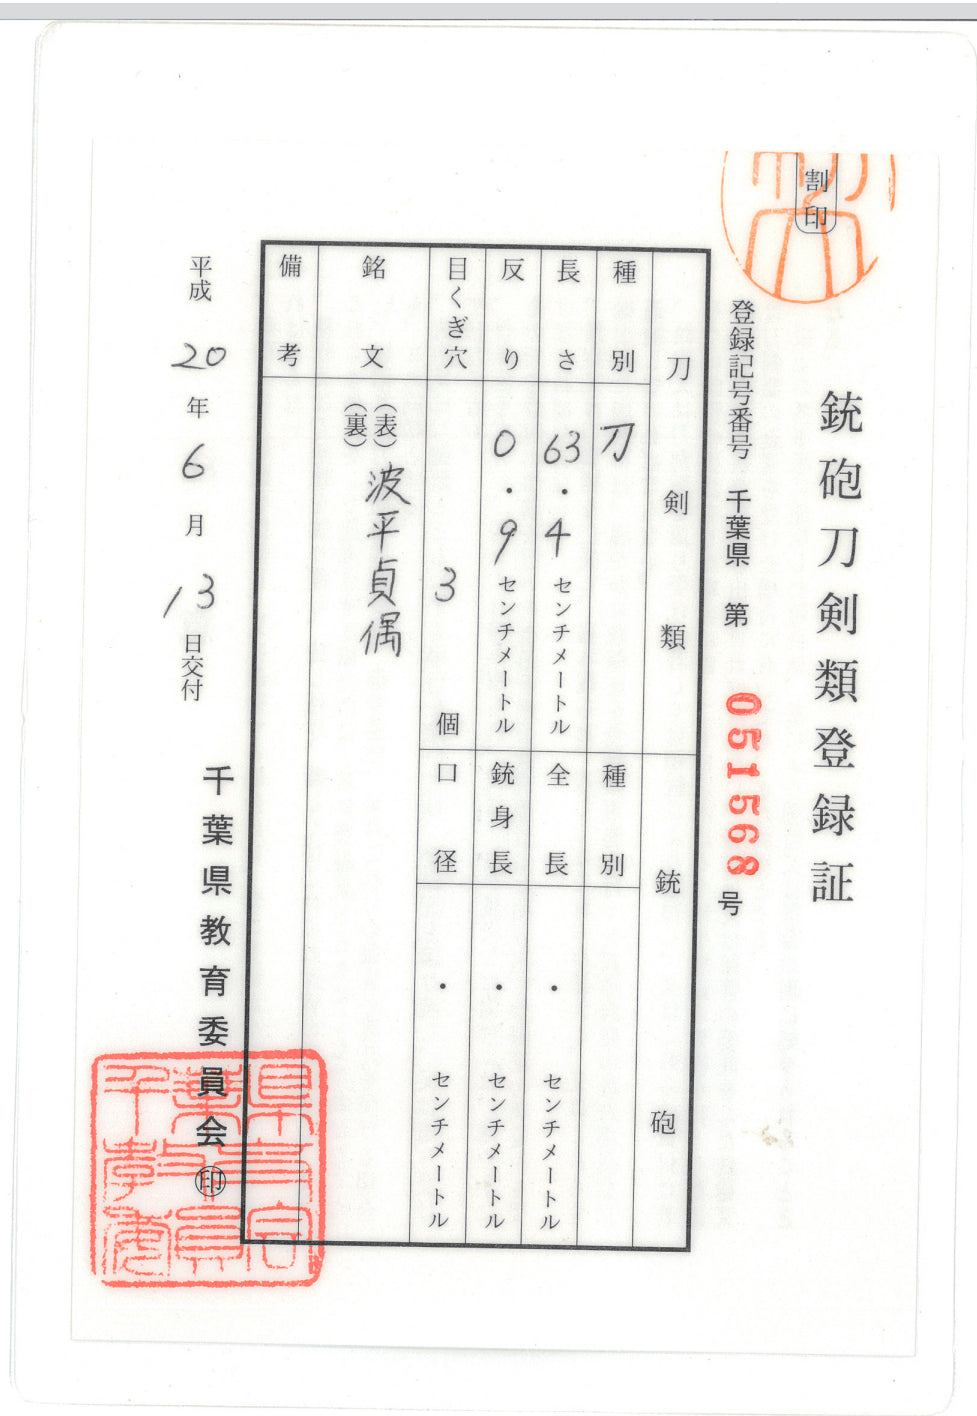 割印
銃砲刀剣類登録証
登録記号番号 千葉県 第 051568 号
刀剣類
種別 刀
長さ 63.4センチメートル
反り 0.9センチメートル
目くぎ穴 3個
銘文 (表)波平貞偶
(裏)
備考
銃砲
種別
全長 ・センチメートル
銃身長 ・センチメートル
口径 ・センチメートル
平成20年6月13日交付
千葉県教育委員会㊞